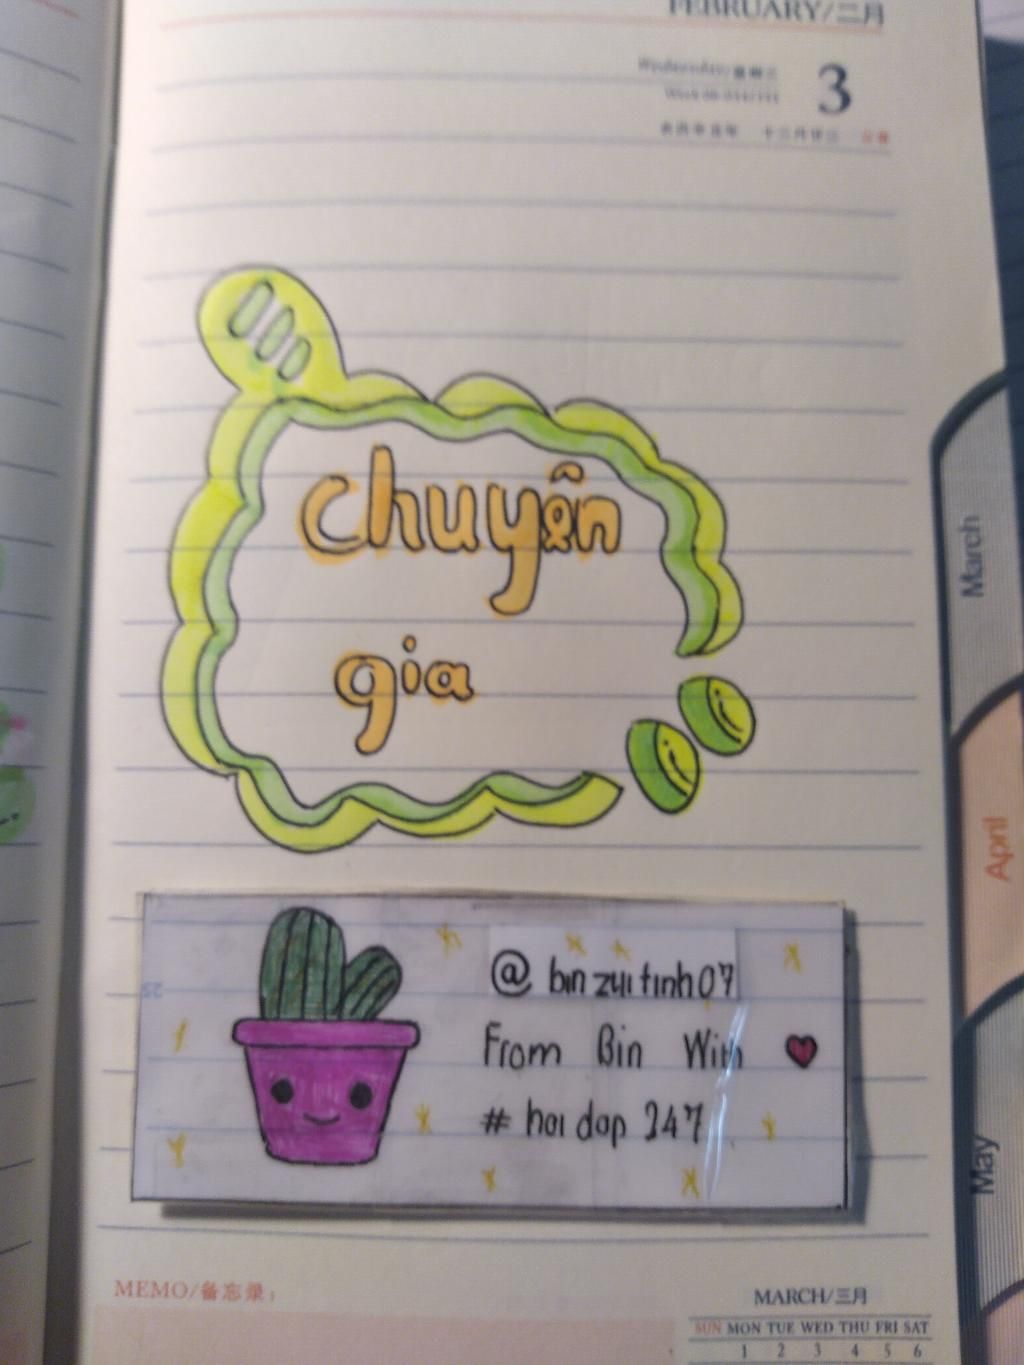 FEBRUARY/二月
Wednesday/星期三
3
Chuyên
gia
@ binzuitinh07
From Bin Win
# hoi dap 247
March
April
May
MEMO/备忘录:
MARCH/三月
SUN MON TUE WED THU FRI SAT
1 2 3 4 5 6